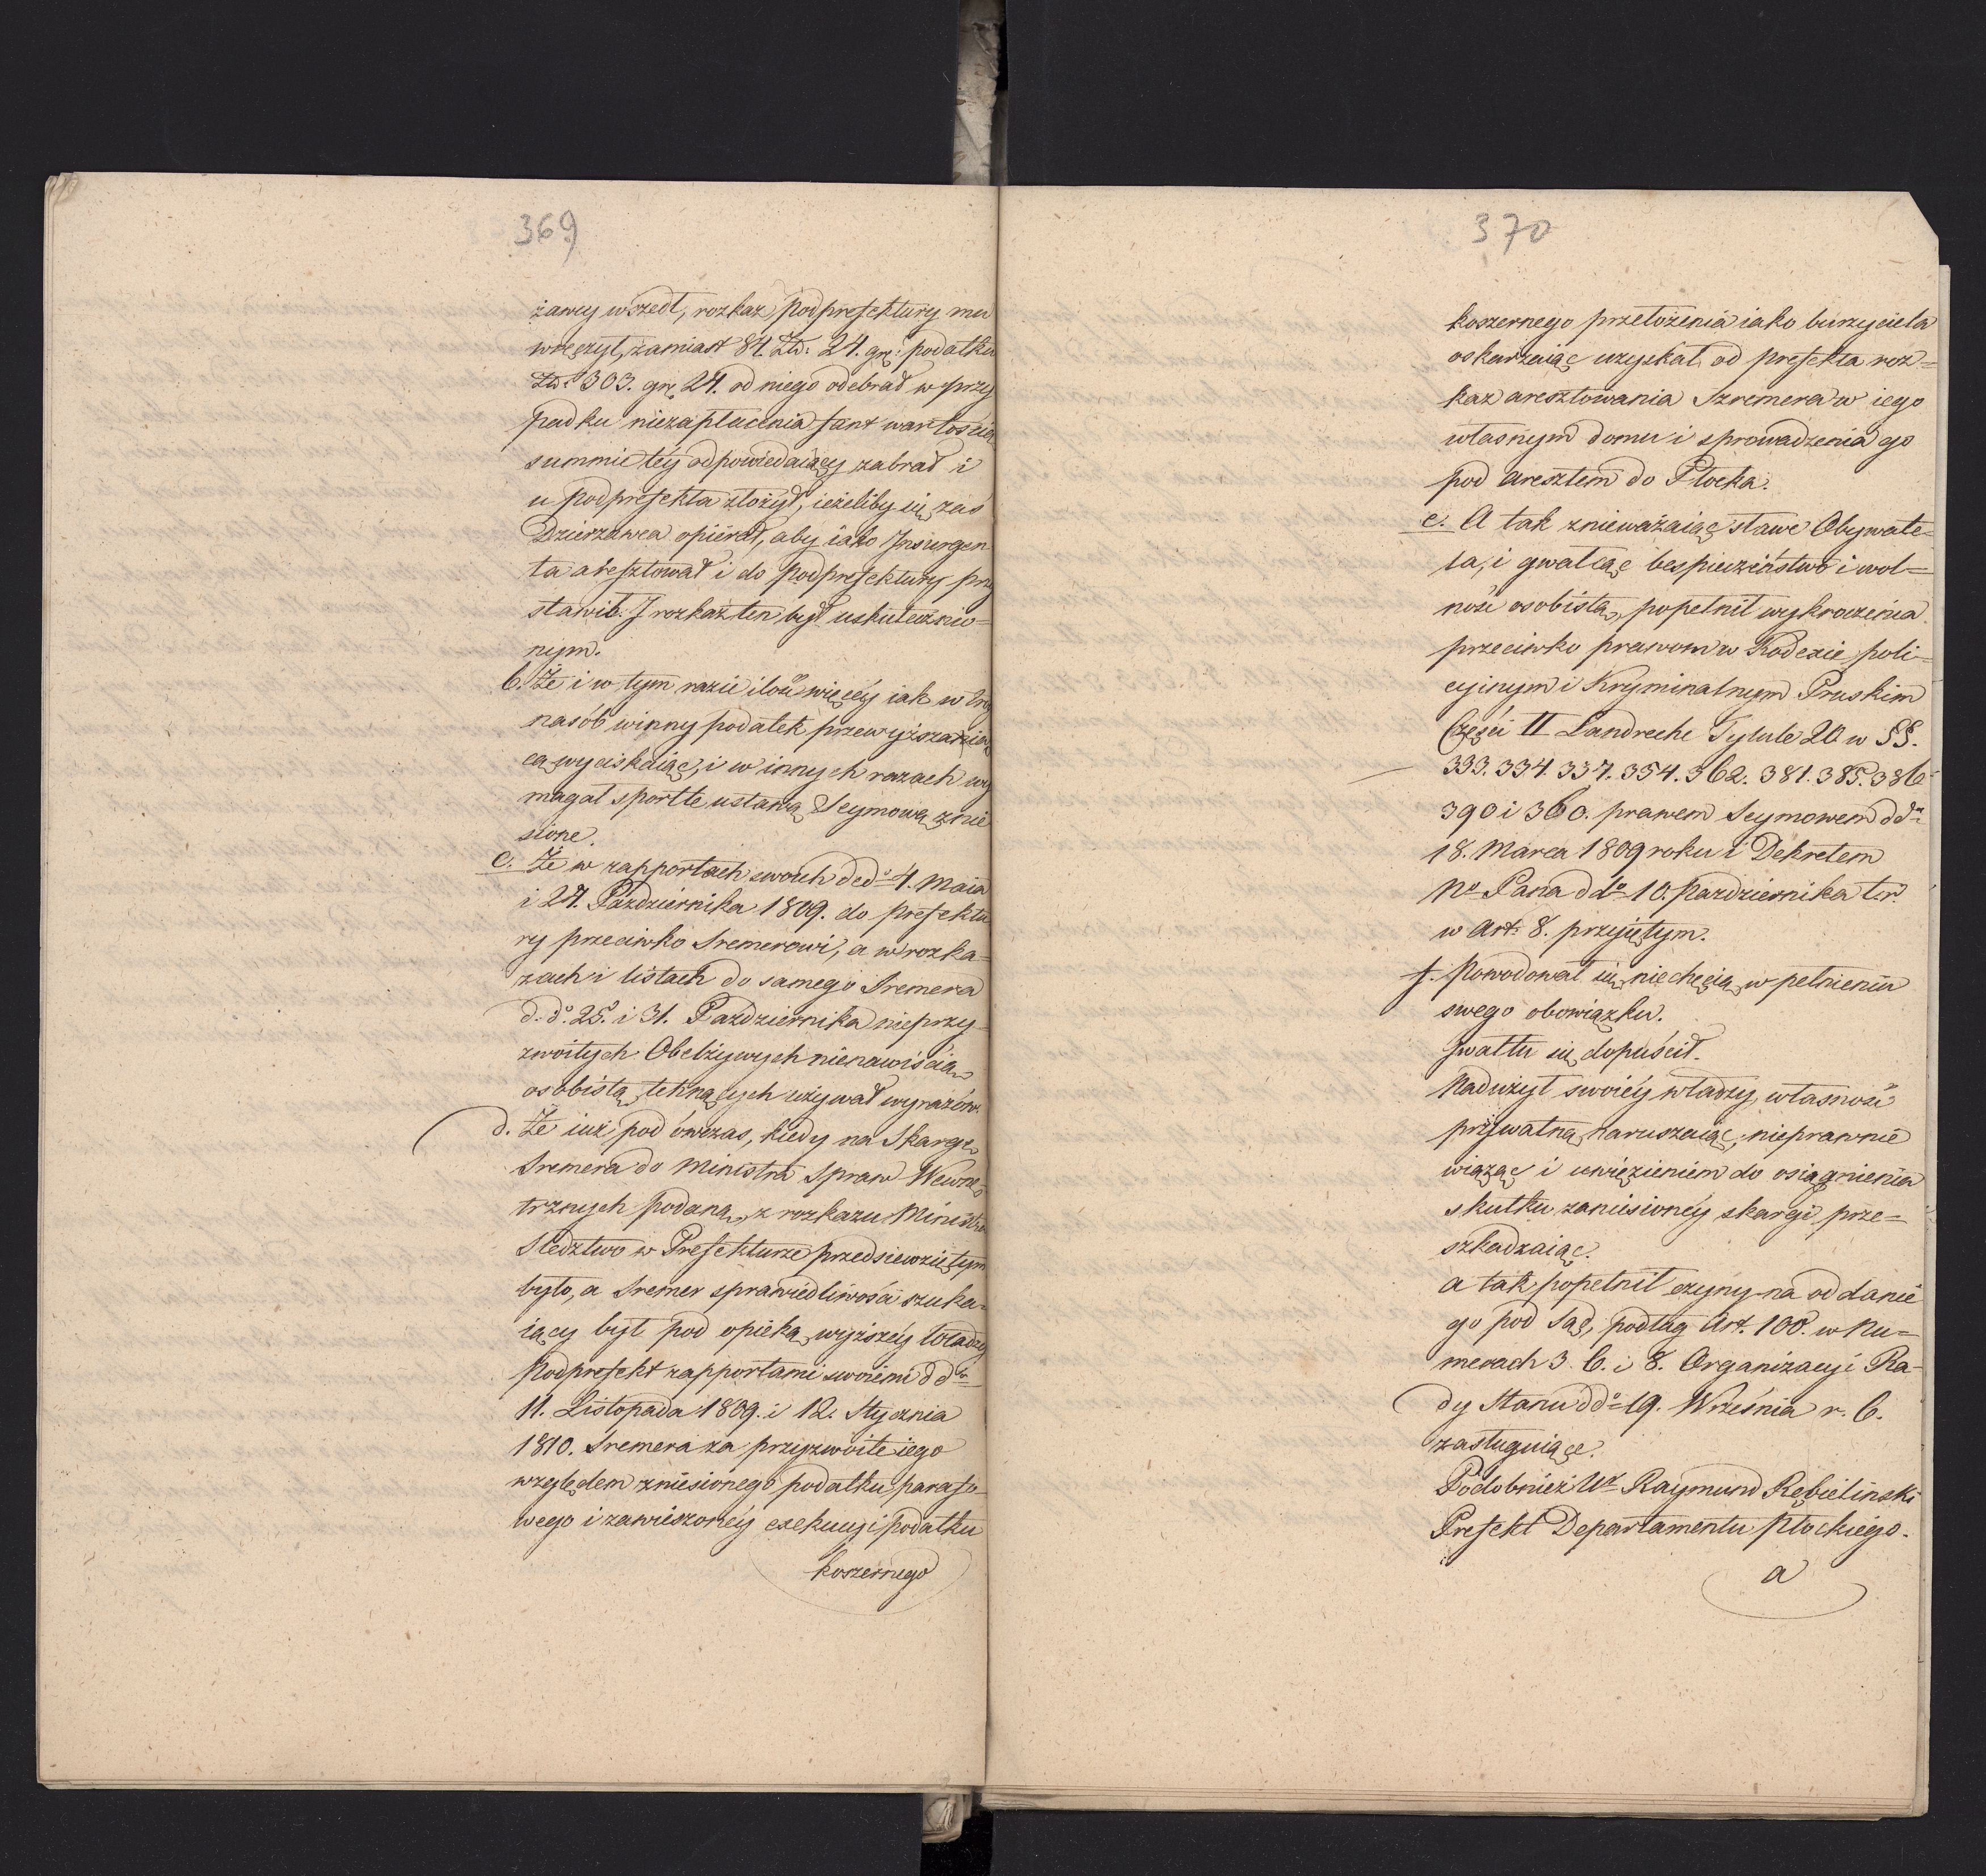 369
żawcy wszedł, rozkaz Podprefektury mu
wręczył, zamiast 84. Zł: 24. gr: podatku
Zł: 303. gr. 24. od niego odebrał w przy
padku niezapłacenia fant wartością
summie tey odpowiedaiącey zabrał i
u Podprefekta złożył, ieżeliby się zaś
Dzierżawca opierał, aby iako Insurgen
ta aresztował i do Podprefektury przy
stawił. I rozkaz ten był uskutecznio=
nym.
b. Że i w tym razie ilość więcey iak w
nasób winny podatek przewyższaią
cą wyciskaiąc, i w innych razach wy
magał sportle ustawą Seymową znie
sione.
c. Że w rapportach swoich ddo 4. Maia
i 27. Października 1809. do Prefektu
ry przeciwko Sremerowi, a w rozka=
zach i listach do samego Sremera
d. do. 25. i 31. Października nieprzy=
zwoitych Obelżywych nienawiścią
osobistą tchnących używał wyrazów.
d. Że iuż pod ówczas, kiedy na Skargę
Sremera do Ministra Spraw Wewnę=
trznych podaną, z rozkazu Ministra
Śledztwo w Prefekturze przedsięwziętym
było, a Sremer sprawiedliwości szuka=
iący był pod opieką wyższey władzy
Podprefekt rapportami swoiemi ddo
11. Listopada 1809. i 12. Stycznia
1810. Sremera za przyzwoite iego
względem zniesionego podatku parafo=
wego i zawieszoney exekucyi podatku
koszernego
370
koszernego przełożenia iako burzyciela
oskarżaiąc uzyskał od prefekta roz=
kaz aresztowania Szremera w iego
własnym domu i sprowadzenia go
pod aresztem do Płocka.
e. A tak znieważaiąc sławę Obywate=
la, i gwałcąc bespieczeństwo i wol=
ność osobistą, popełnił wykroczenia
przeciwko prawom w Kodexie poli=
cyinym i Kryminalnym Pruskim
Części II Landrecht Tytule 20 w §§.
333. 334. 337. 354. 362. 381. 385. 386
390 i 360. prawem Seymowem ddo
18. Marca 1809 roku i Dekretem
No Pana ddo 10. Października t.r.
w Art: 8. przyiętym.
f. Powodował się niechęcią w pełnieniu
swego obowiązku.
Gwałtu się dopuścił.
Nadużył swoiéy władzy, własność
prywatną naruszaiąc, nieprawnie
wiążąc i uwięzieniem do osiągnienia
skutku zaniesionéy skargi prze=
szkadzaiąc.
a tak popełnił czyny na oddanie
go pod Sąd, podług Art. 108. w Nu=
merach 3. 6. i 8. Organizacyi Ra=
dy Stanu ddo 19. Września r. b.
zasługuiące.
Podobnież Wy Raymund Rębieliński
Prefekt Departamentu Płockiego.
a